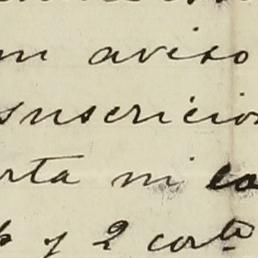 un aviso
suscricion
rta mi co
y 2 corta